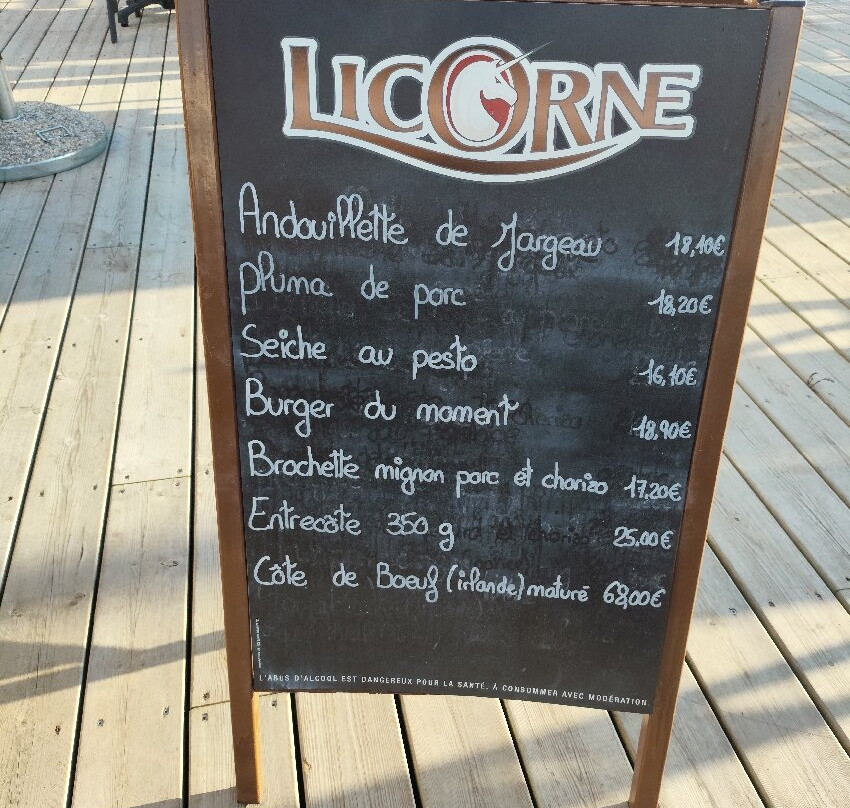 LICORNE
Andouillette de Jargeau 18,10€
pluma de porc 18,20€
Seiche au pesto 16,10€
Burger du moment 18,90€
Brochette mignon porc et chorizo 17,20€
Entrecôte 350 g 25.00€
Côte de Boeuf (irlande) maturé 68,00€
L'ABUS D'ALCOOL EST DANGEREUX POUR LA SANTÉ. À CONSOMMER AVEC MODÉRATION.